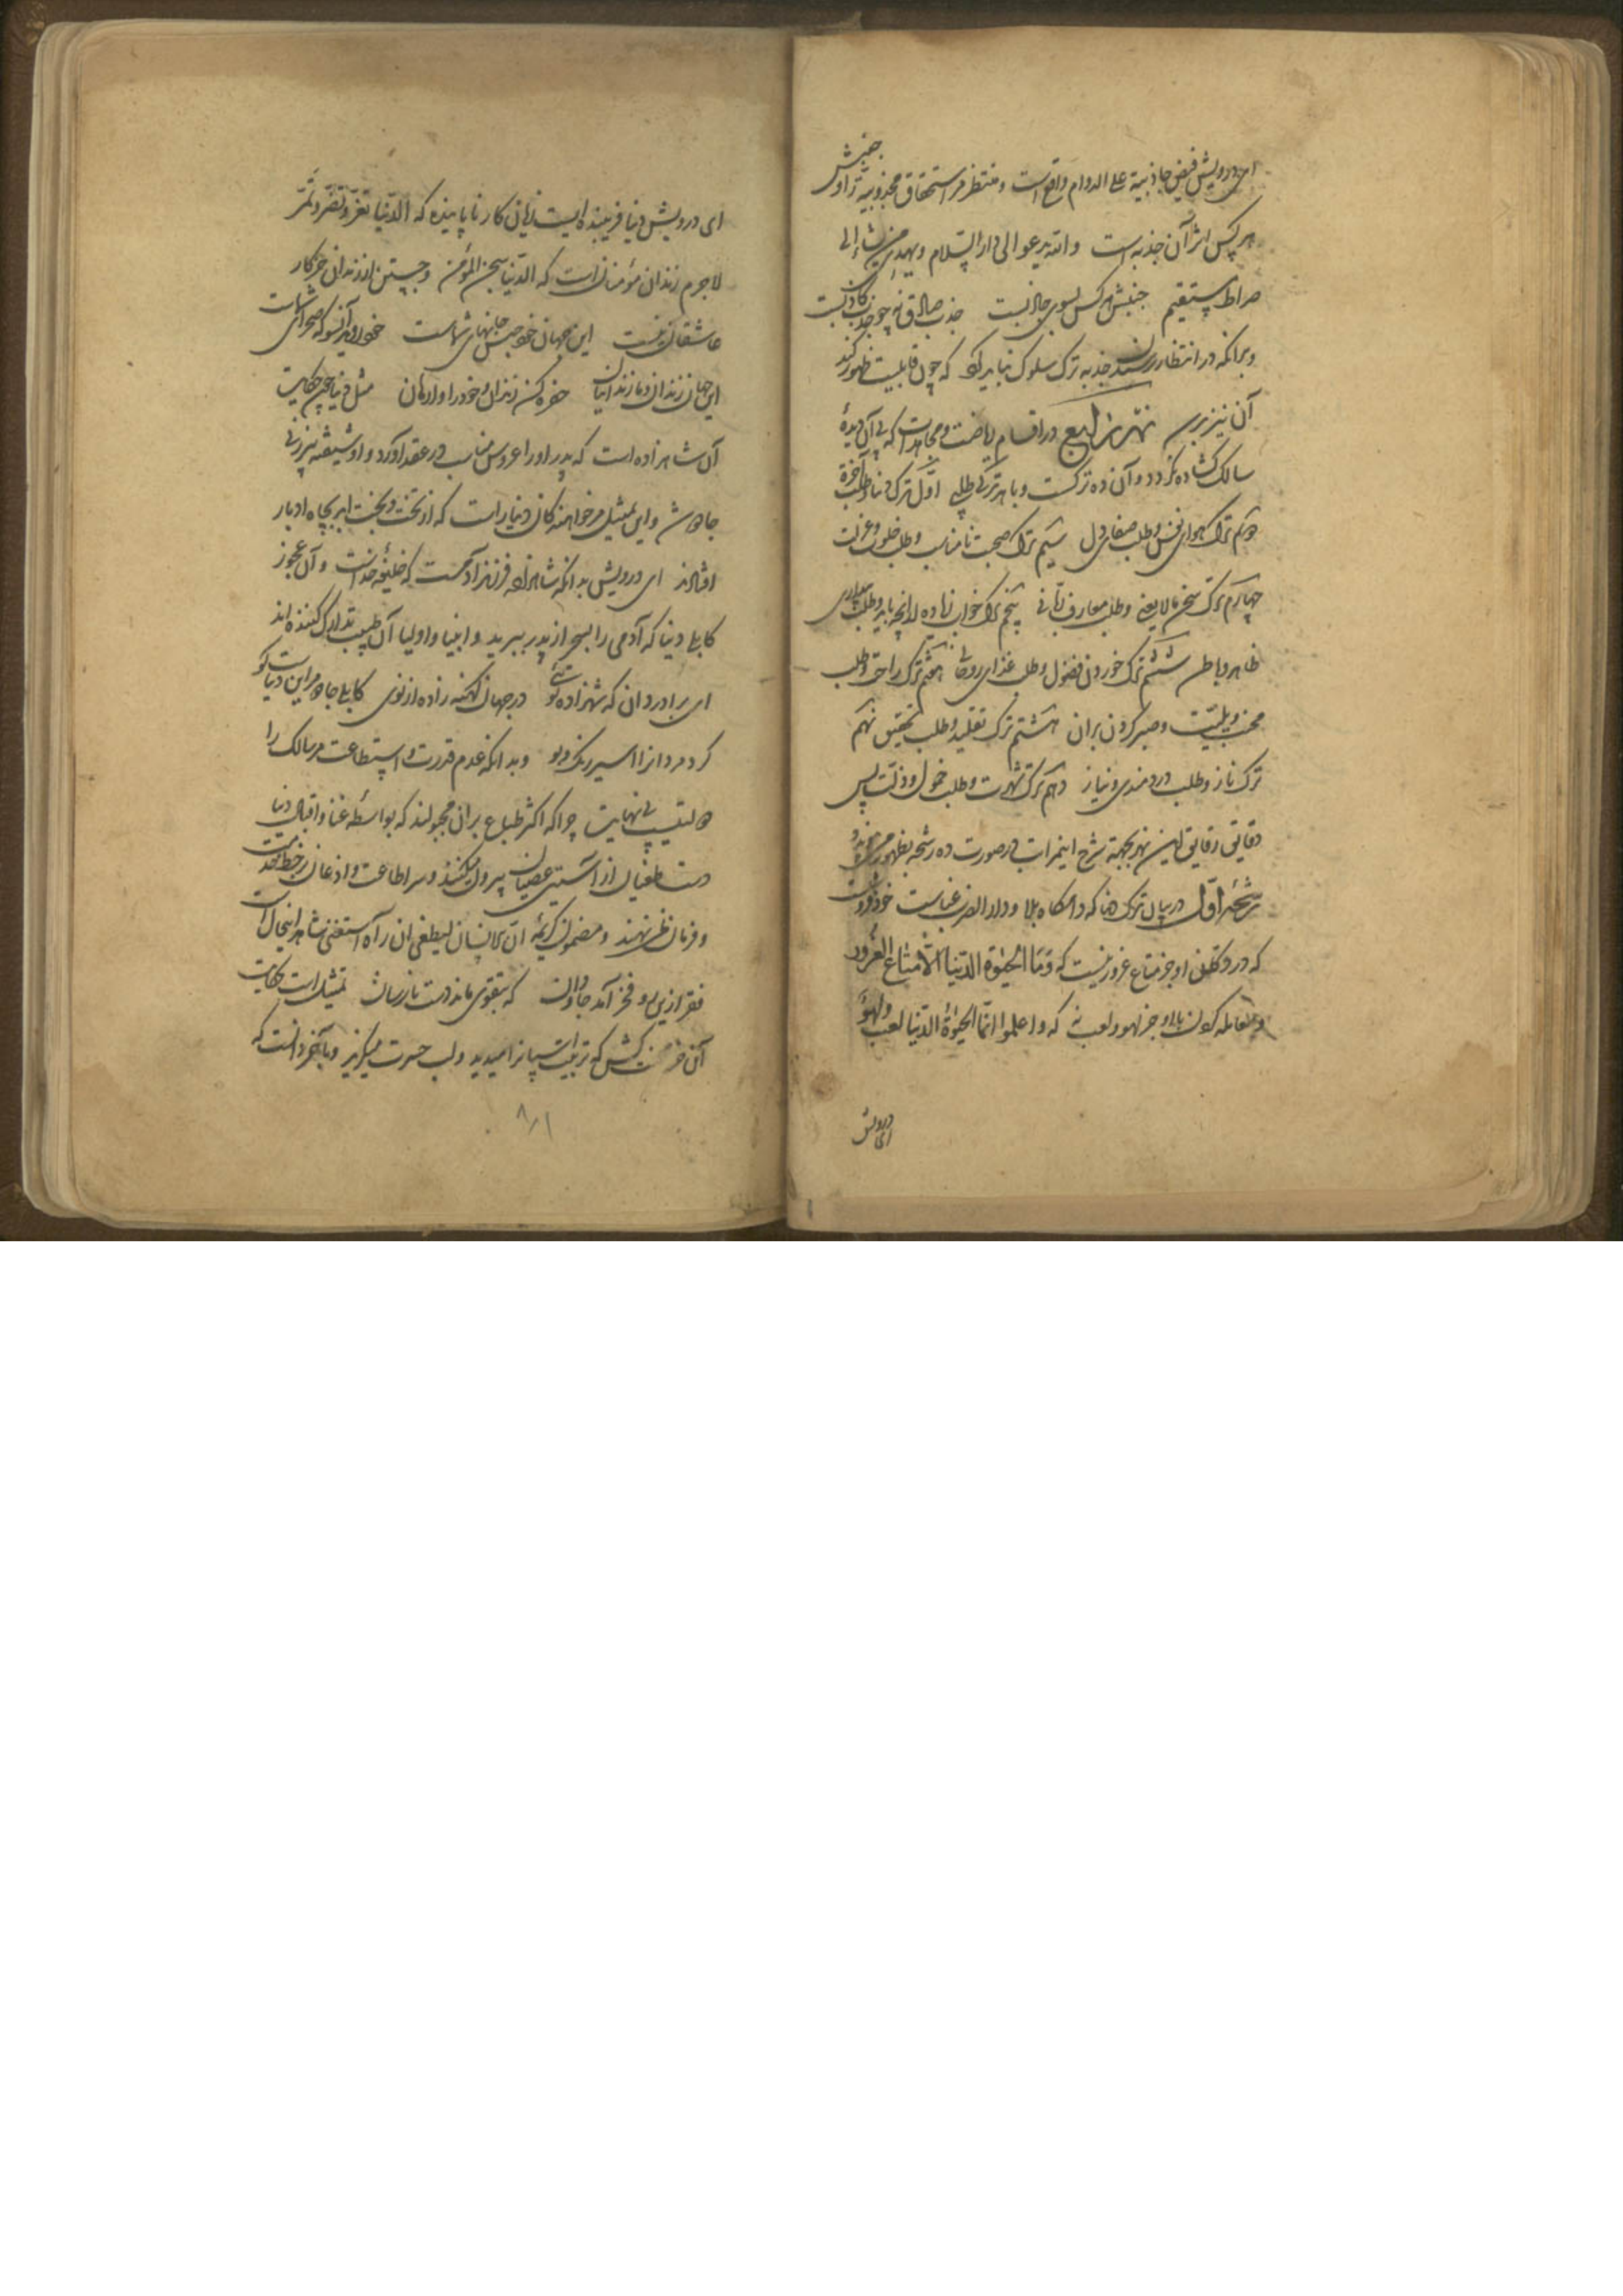 ای درویش فیض جاذبیة علی الدوام واقع است و منتظر استحقاق مجذوبیة تو او جنبش
هر کس اثر آن جذبه است والله یدعو الی دار السلام و یهدی من یشاء الی
صراط مستقیم جنبش هر کس بسوی جاذبست جذب صادق نه چو جذب کاذبست
و بدانکه در انتظار رسیدن جذبه ترک سلوک نباید کرد که چون قابلیت ظهور کند
آن نیز برسد نهر رابع در اقسام ریاضت و مجاهدات که بی آن دیدهٔ
سالک گشاده نگردد و آن ده ترکست و با هر ترکی طلبی اول ترک دنیا و طلب آخرة
دوم ترک هوای نفس و طلب صفای دل سیم ترک صحبت نامناسب و طلب خلوت و عزلت
چهارم ترک سخن مالایعنی و طلب معارف ربانی پنجم ترک خواب زیاده از آنچه باید و طلب بیداری
ظاهر و باطن ششم ترک خوردن فضول و طلب غذای روحانی هفتم ترک راحت و طلب
محنت و بلیت و صبر کردن بران هشتم ترک تقلید و طلب تحقیق نهم
ترک ناز و طلب دردمندی و نیاز دهم ترک شهرت و طلب خمول و ذلت پس
دقایق رقایق این نهر بجهة شرح این مراتب در صورت ده رشحه بظهور
رشحهٔ اول در بیان ترک دنیا که دامگاه بلا و دار الضرب عناست
که در دکان او جز متاع غرور نیست که وما الحیوة الدنیا الا متاع الغرور
و معامله کردن با او جز لهو و لعب نه که واعلموا انما الحیوة الدنیا لعب ولهو
ای درویش
ای درویش دنیا فریبنده ایست زیان کار ناپاینده که الدنیا تغر و تضر و تمر
لاجرم زندان مؤمنان است که الدنیا سجن المؤمن و جستن از زندان جز کار
عاشقان نیست این جهان خود حبس جانهای شماست خود روید آنسو که صحرای شماست
این جهان زندان و ما زندانیان حفره کن زندان و خود را وا رهان مثل دنیا چون حکایت
آن شاهزاده است که پدر او را عروس مناسب در عقد آورد و او شیفته پیرزنی
جادو شد و این تمثیل مر خواهندگان دنیا راست که از تخت و بخت ابد بچاه ادبار
افتادند ای درویش بدانکه شاهزاده فرزند آدمست که خلیفهٔ خداست و آن عجوز
کابلی دنیا که آدمی را بسحر از پدر ببرید و انبیا و اولیا آن طبیب تدارک کننده اند
ای برادر دان که شهزاده توئی در جهان کهنه زاده از نوی کابلی جادو مر این دنیاست کو
کرد مردانرا اسیر رنگ و بو و بدانکه عدم قدرت و استطاعت مر سالک را
دولتیست بی نهایت چرا که اکثر طباع بران مجبولند که بواسطهٔ غنا و اقبال دنیا
دست طغیان از آستین عصیان بیرون میکنند و سر اطاعت و اذعان بر خط
و فرمان نمی نهند و مضمون کریمهٔ ان الانسان لیطغی ان رآه استغنی شاهد این حال است
فقر ازین رو فخر آمد جاودان که بتقوی ماند دست نارسان تمثیل است حکایت
آن کش که تربیت اسپانرا میدید و لب حسرت میگزید و بآخر دانست که
۸۱